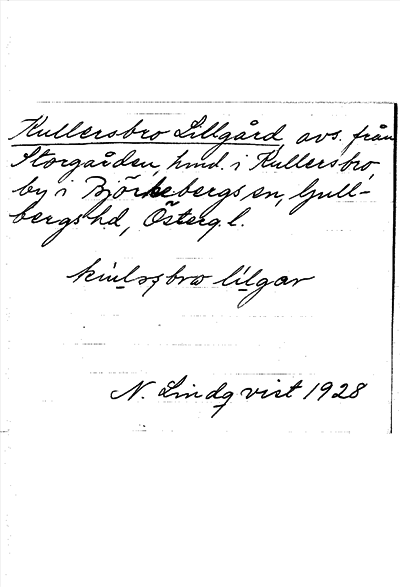 Kullersbro Lillgård, avs. från
Storgården, hmd. i Kullersbro,
by i Björkebergs sn, Gull-
bergs hd, Österg.l.
lilgar
N. Lindqvist 1928